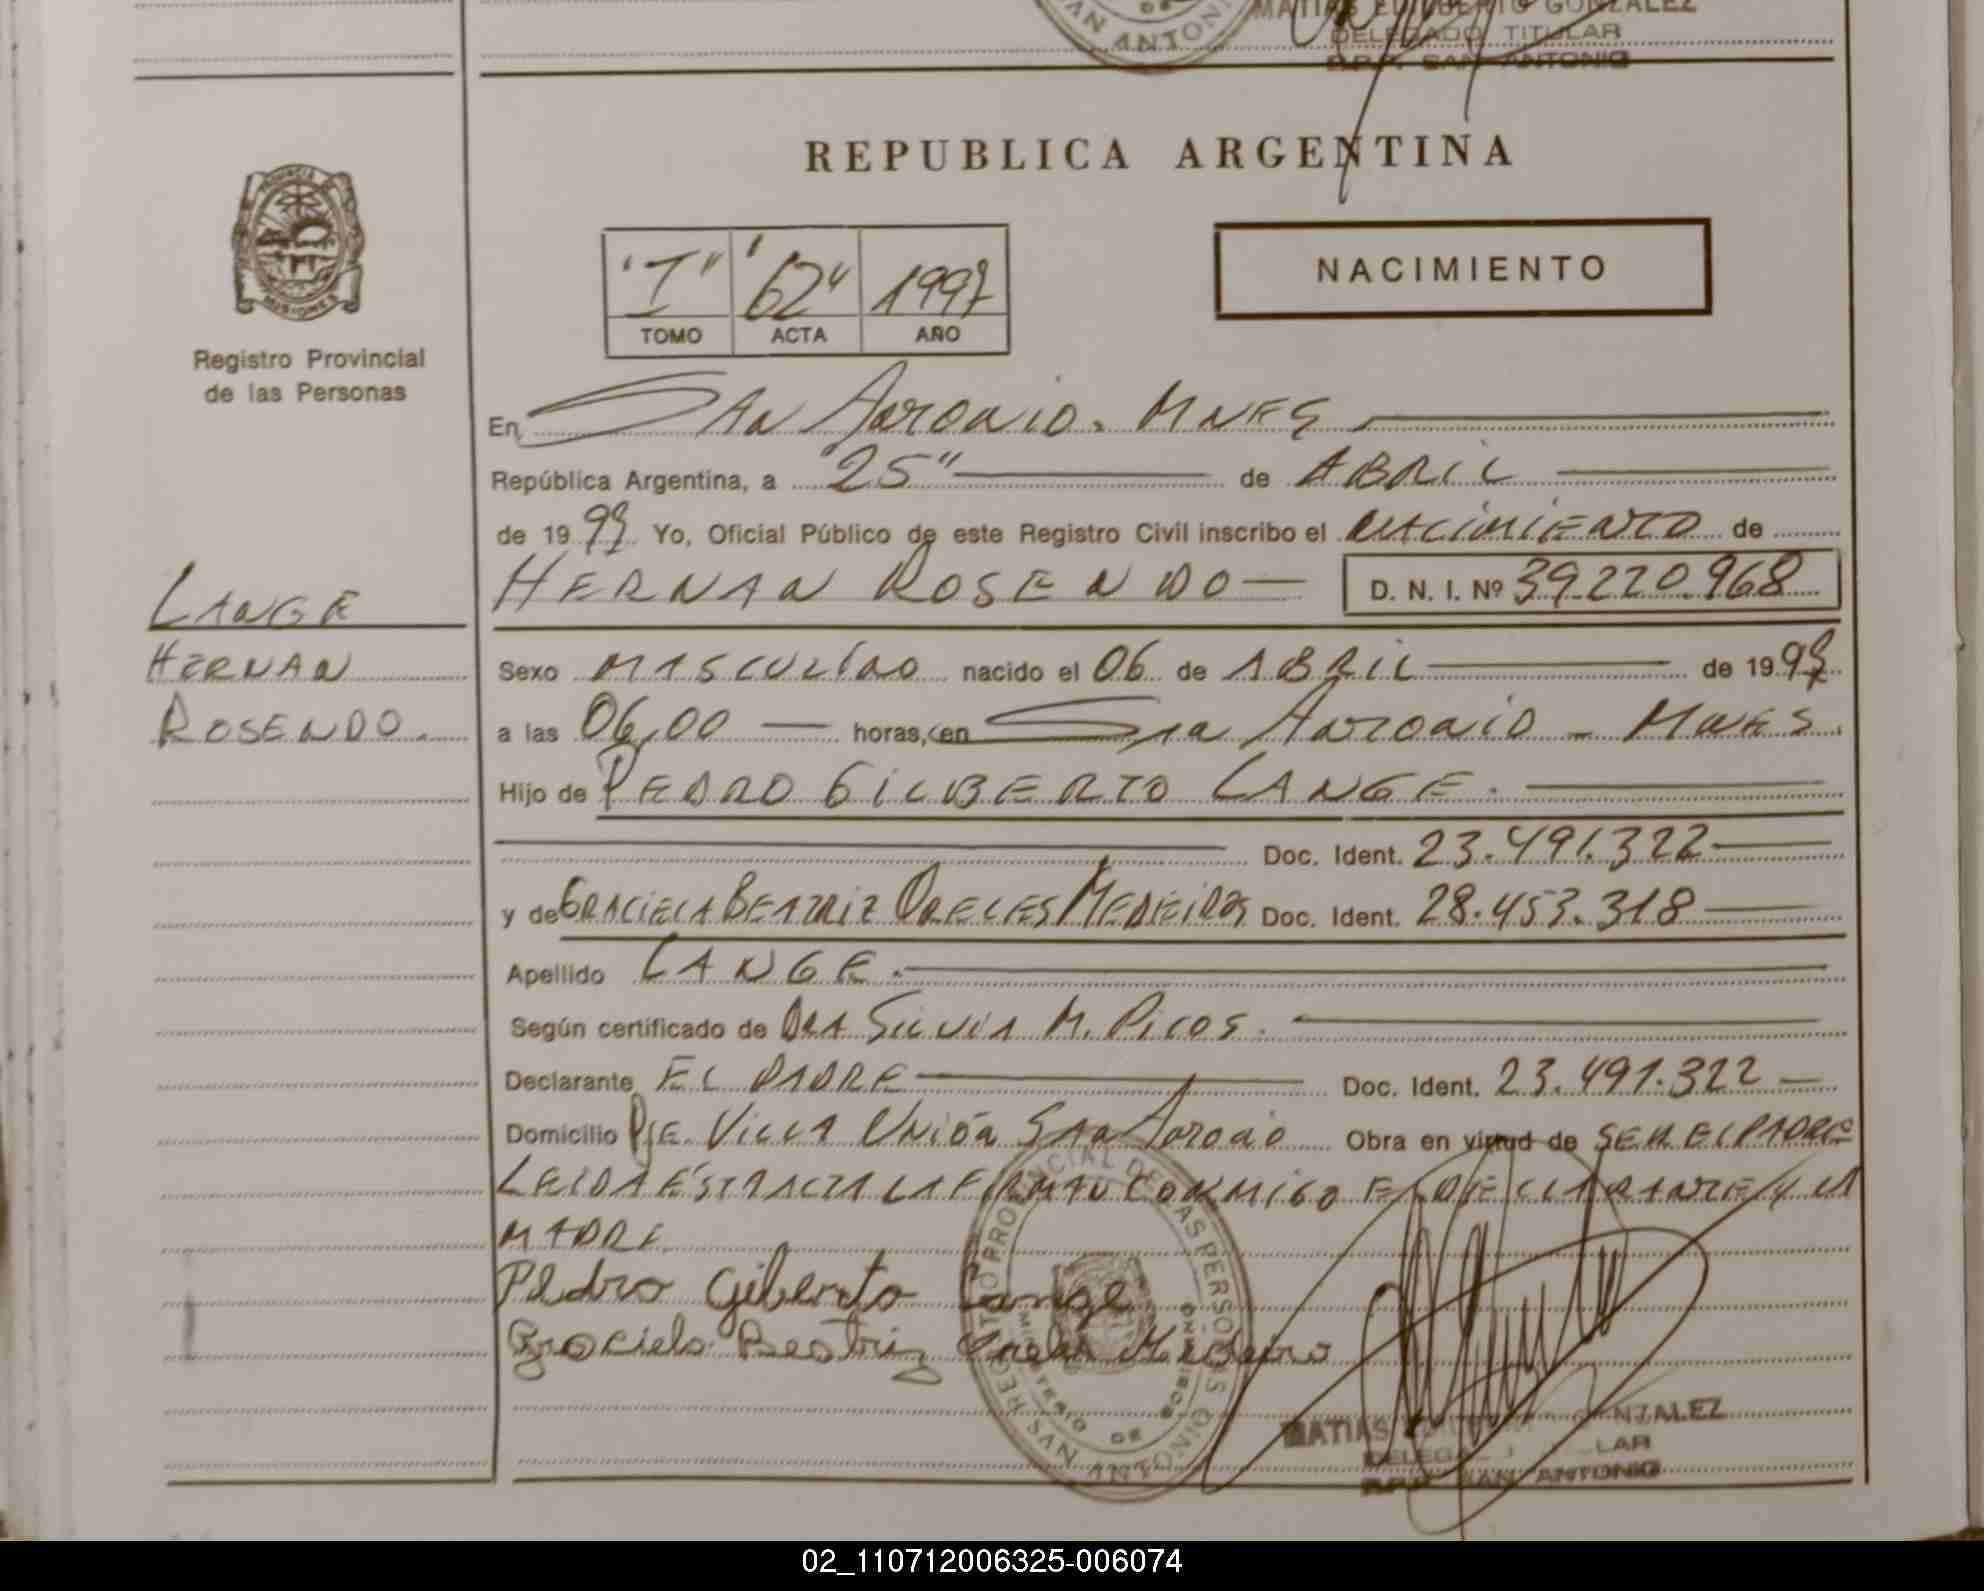 SAN ANTONIO
DE
MATIAS EDILBERTO GONZALEZ
DELEGADO TITULAR
R.P.P. SAN ANTONIO
REPUBLICA ARGENTINA
PROVINCIA DE
MISIONES
Registro Provincial
de las Personas
"I" "62" 1997
TOMO ACTA AÑO
NACIMIENTO
En SAN ANTONIO. MNES
República Argentina, a "25" de ABRIL
de 1997 Yo, Oficial Público de este Registro Civil inscribo el NACIMIENTO de
HERNAN ROSENDO D. N. I. Nº 39.220.968
LANGE
HERNAN
ROSENDO.
Sexo MASCULINO nacido el 06 de ABRIL de 1997
a las 06,00 horas, en SAN ANTONIO - MNES.
Hijo de PEDRO GILBERTO LANGE.
Doc. Ident. 23.491.322
y de GRACIELA BEATRIZ ORELES MEDEIROS Doc. Ident. 28.453.318
Apellido LANGE.
Según certificado de DRA SILVIA M. PICOS.
Declarante EL PADRE Doc. Ident. 23.491.322
Domicilio PJE. VILLA UNIÓN SAN ANTONIO Obra en virtud de SER EL PADRE
LEIDA ESTA ACTA LA FIRMAN CONMIGO EL DECLARANTE Y LA
MADRE
Pedro Gilberto Lange
Graciela Beatriz Oreles Medeiro
REGISTRO PROVINCIAL DE LAS PERSONAS
MINISTERIO DE GOBIERNO
SAN ANTONIO
MATIAS GONZALEZ
DELEGADO TITULAR
R.P.P. SAN ANTONIO
02_110712006325-006074